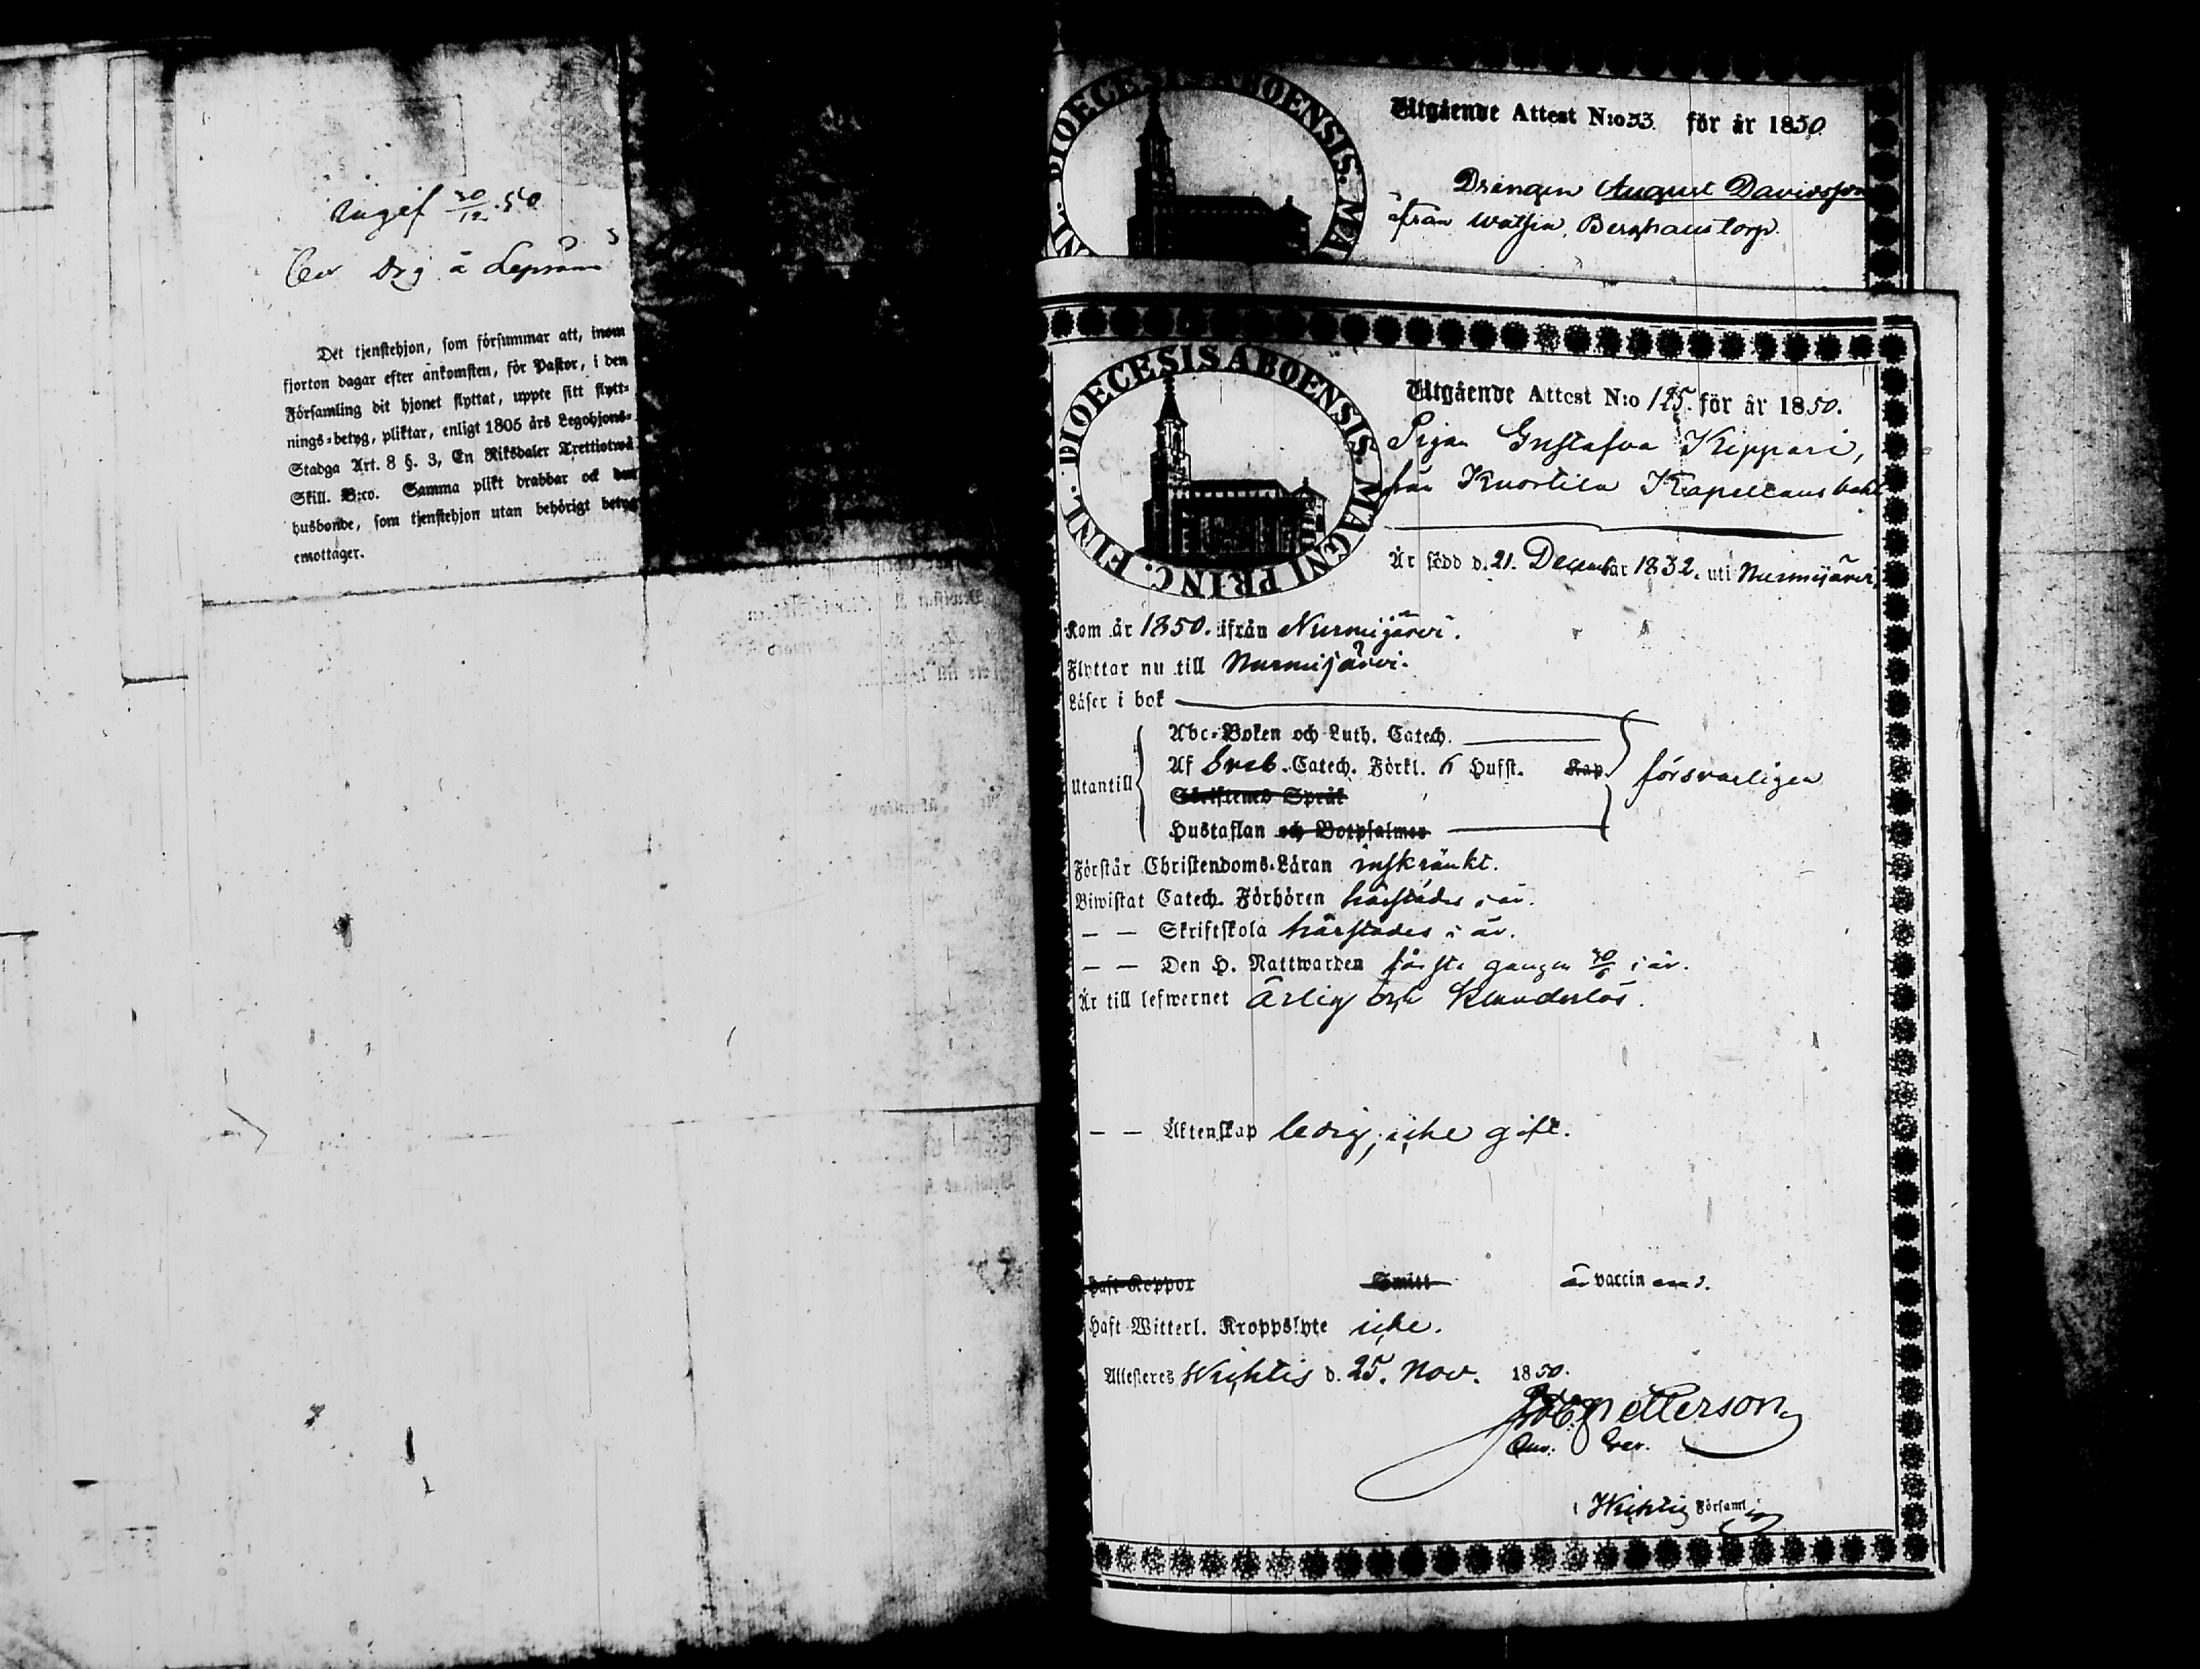 Ingif 30/12. 50
Det tjenstehjon, som försummar att, inom
fjorton dagar efter ankomsten, för Pastor, i den
Församling dit hjonet flyttat, uppte sitt flytt-
nings-betyg, pliktar, enligt 1805 års Legohjons-
Stadga Art. 8 §. 3, En Riksdaler Trettiotwå
Skill. B:co. Samma plikt drabbar ock den
husbonde, som tjenstehjon utan behörigt betyg
emottager.
DIOECESIS ABOENSIS. MA
Utgående Attest N:o 33 för år 1850
Drängen August Davidsson
ifrån Berghans torp.
FINL. DIOECESIS ABOENSIS. MAGNI PRINC.
Utgående Attest N:o 125. för år 1850.
Pigan Gustafva Kippari,
från Kuortila Kapellansbohl
Är född d. 21. December 1832. uti Nurmijärvi
Kom år 1850. ifrån Nurmijärvi.
Flyttar nu till Nurmijärvi.
Läser i bok
Utantill
Abc-Boken och Luth. Catech.
Af Sveb. Catech. Förkl. 6 Hufst. Kap. försvarligen
Skriftenes Språk
Hustaflan och Botpsalmer
Förstår Christendoms-Läran inskränkt.
Biwistat Catech. Förhören härstädes i år.
— — Skriftskola härstädes i år.
— — Den H. Nattwarden första gången 30/6 i år.
Är till lefwernet ärlig och klanderlös.
— — Äktenskap ledig, icke gift.
Haft Koppor Smitt är vaccinerad.
Haft Witterl. Kroppslyte icke.
Attesteres Wichtis d. 25. Nov. 1850.
Petterson
i Wichtis Församl